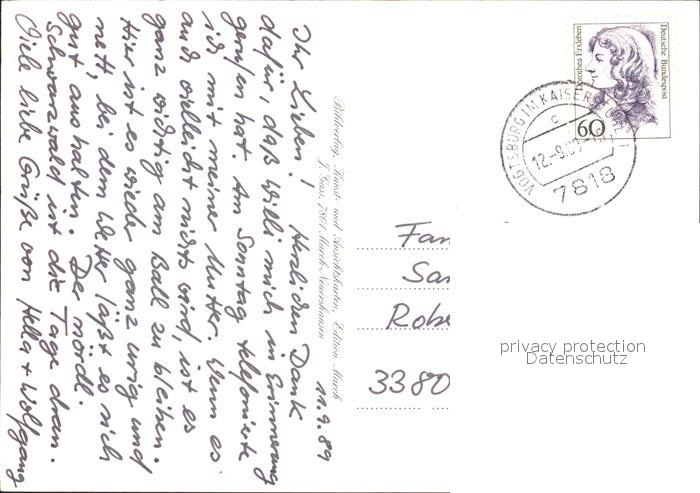 11.9.89
Ihr Lieben! Herzlichen Dank
dafür, daß Willi mich in Erinnerung
gerufen hat. Am Sonntag telefonierte
ich mit meiner Mutter. Wenn es
auch vielleicht nichts wird, ist es
ganz wichtig am Ball zu bleiben.
Hier ist es wieder ganz urig und
nett, bei dem Wetter läßt es sich
gut aushalten. Der nördl.
Schwarzwald ist die Tage dran.
Viele liebe Grüße von Hella + Wolfgang
Bildverlag, Kunst- und Ansichtskarten, Edition March
J. Gass, 7801 March-Neuershausen
Deutsche Bundespost
Dorothea Erxleben
60
VOGTSBURG IM KAISERSTUHL
c
12.-9.89
7818
Fam
San
Robe
3380
privacy protection
Datenschutz